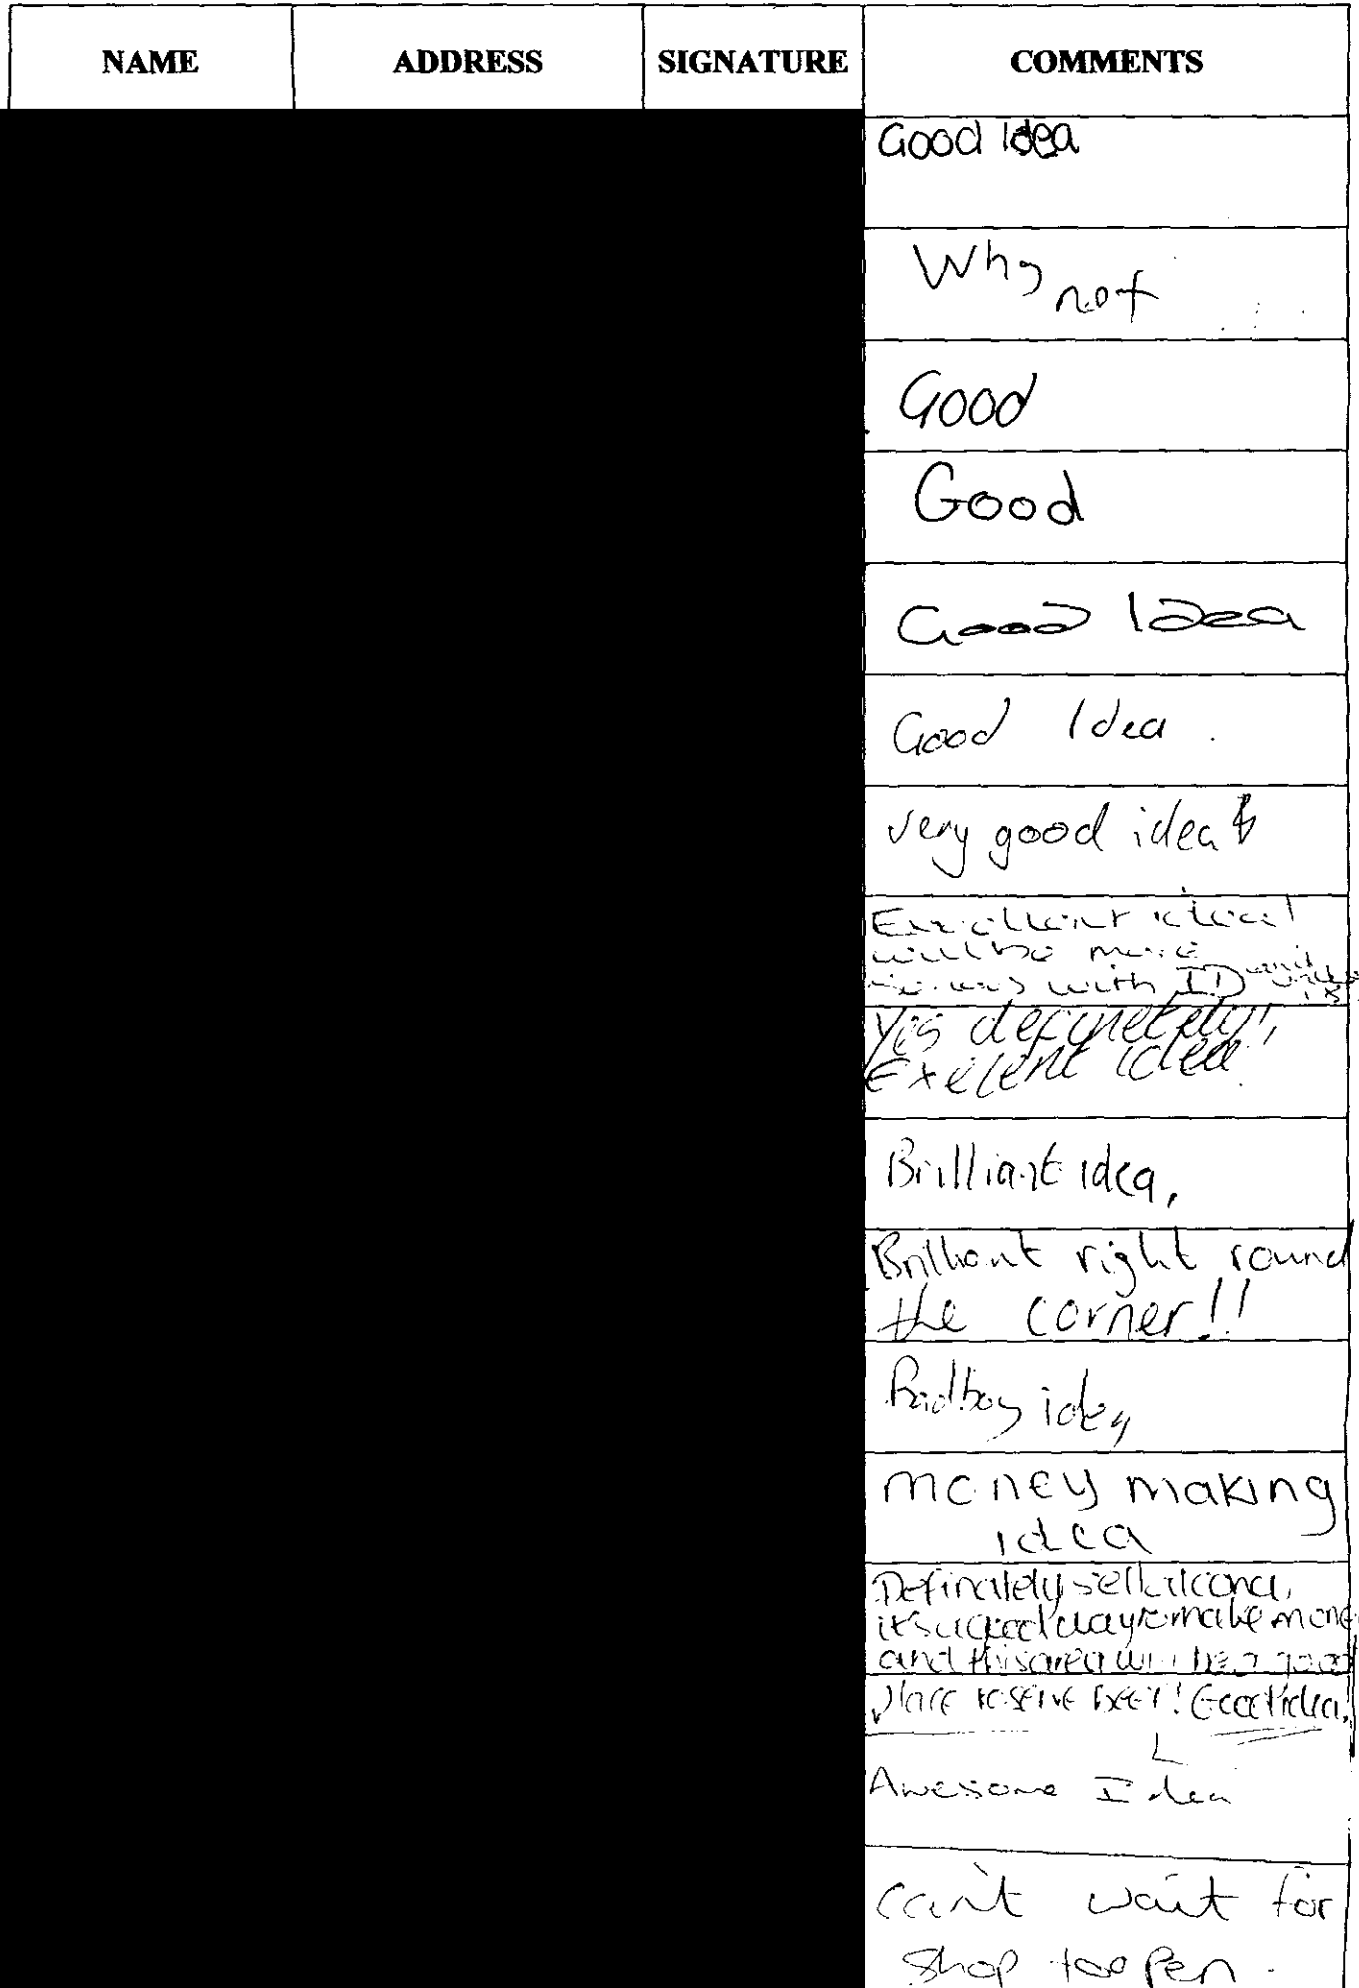 NAME ADDRESS SIGNATURE COMMENTS
Good Idea
Why not
Good
Good
Good Idea
Good Idea.
very good idea
Excellent idea!
will be more
with ID and
Yes definetely!,
Exelent idea.
Brilliant idea,
Brilliant right round
the corner!!
Badboy idea
money making
idea
Definately sell
its a good way to make money
and this area will be a good
place to serve beer! Good idea.
Awesome Idea
can't wait for
shop to open.